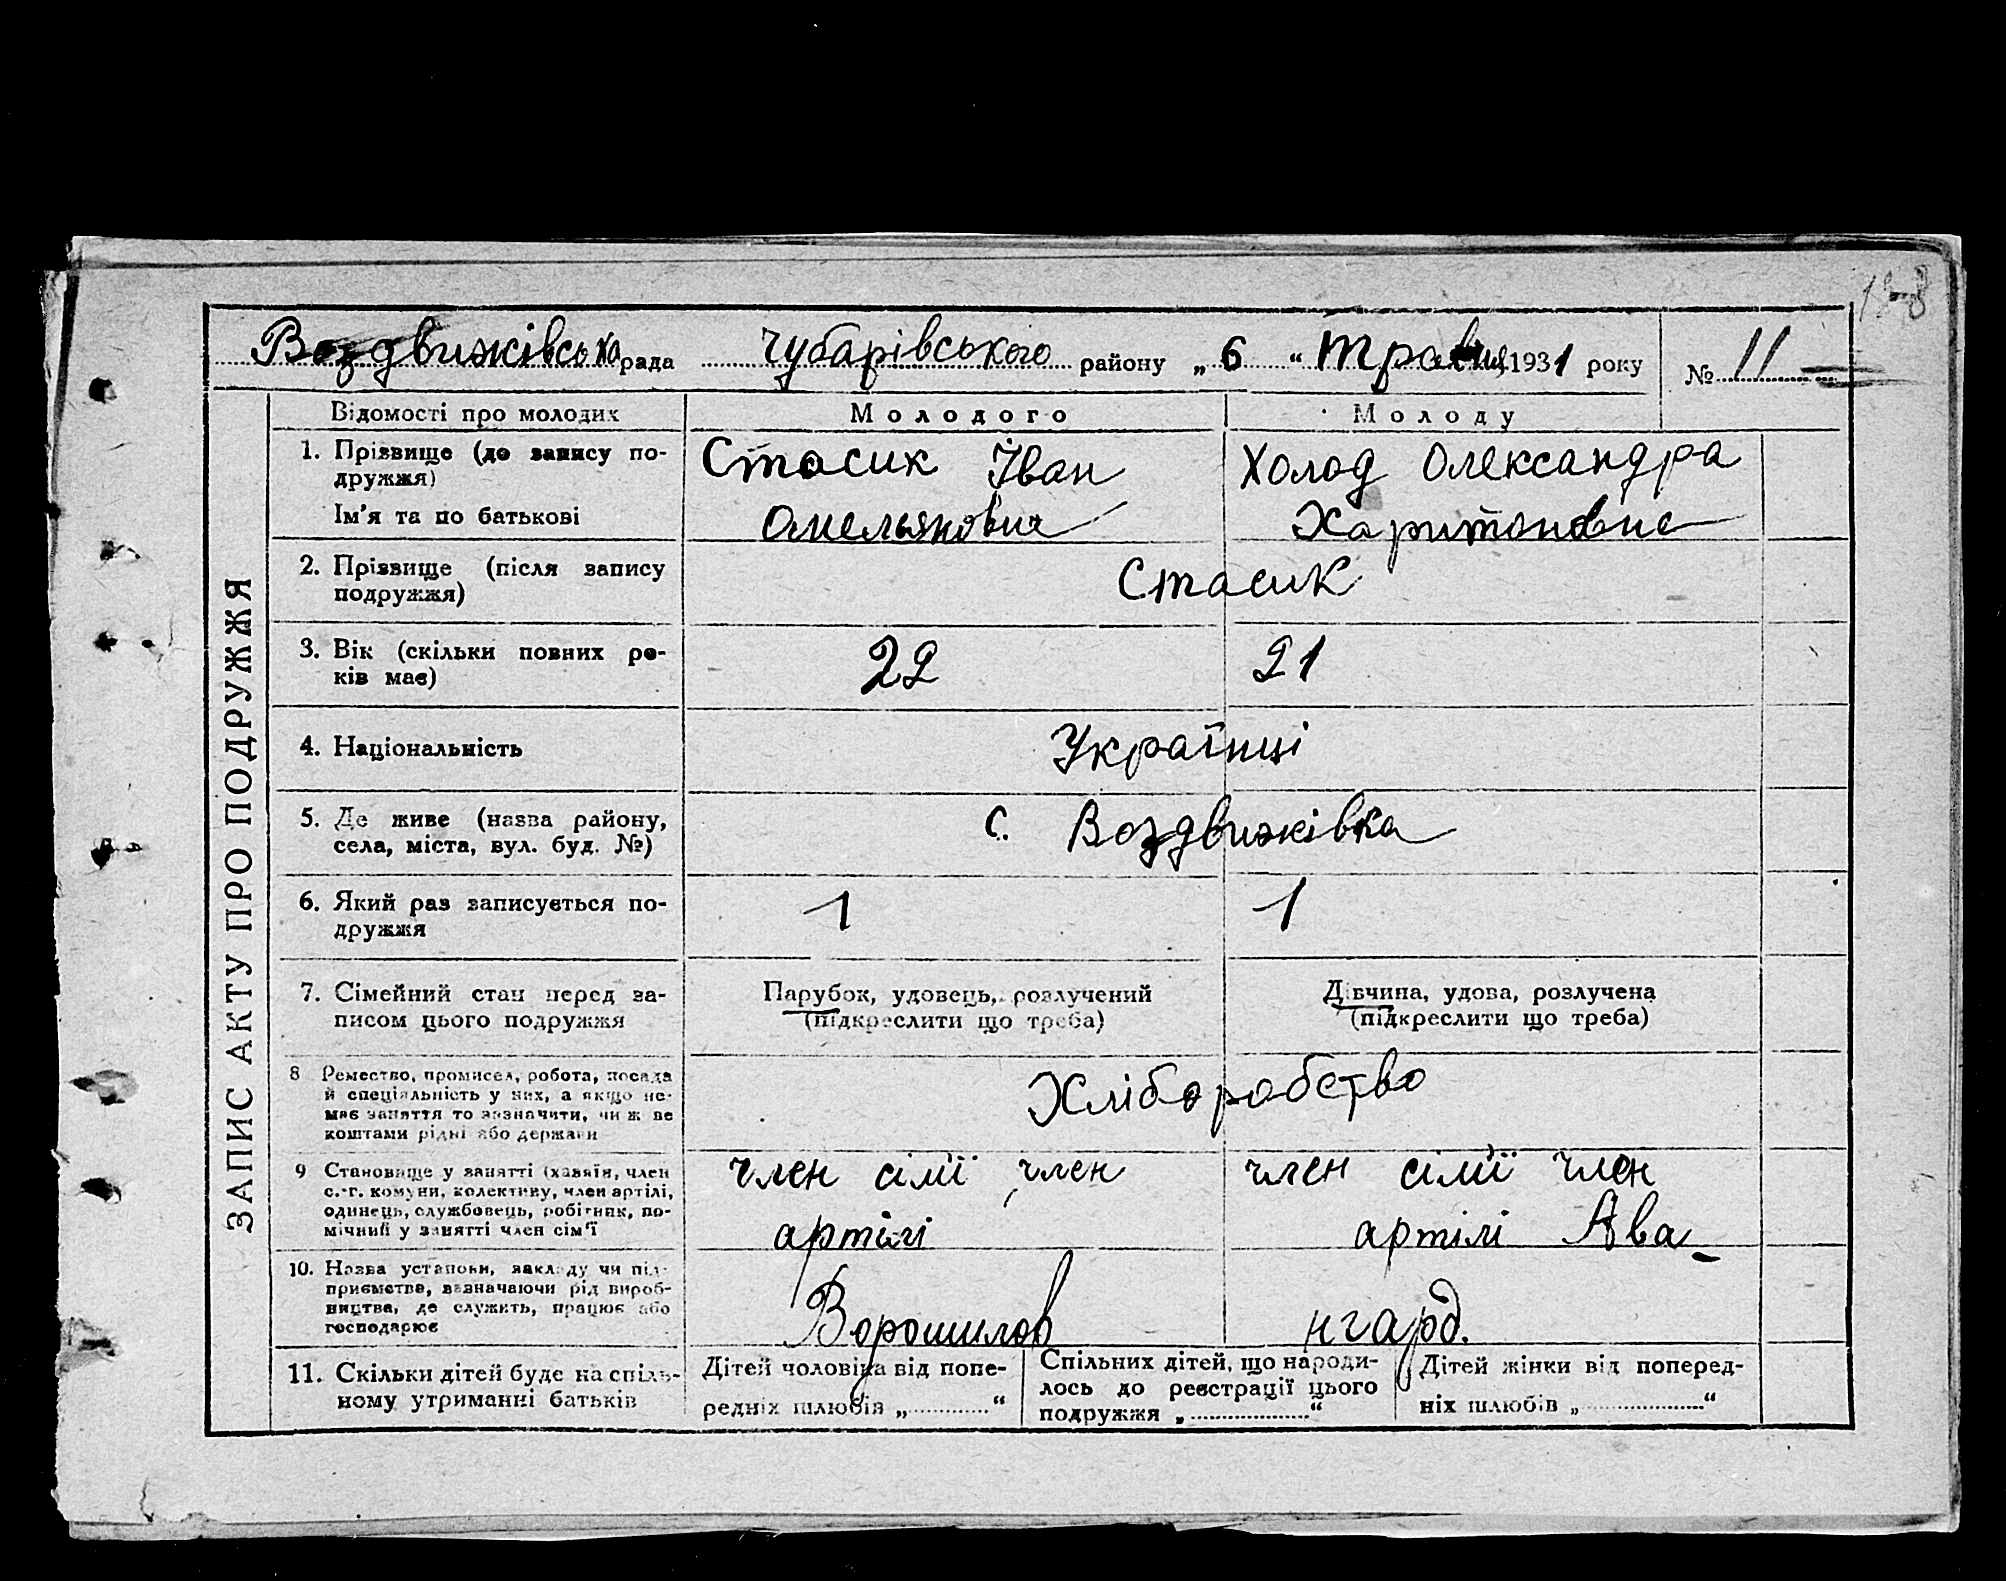 Воздвижівська рада Чубарівського району „ 6 “ травня 1931 року № 11
ЗАПИС АКТУ ПРО ПОДРУЖЖЯ
Відомості про молодих Молодого Молоду
1. Прізвище (до запису по-
дружжя)
Ім'я та по батькові
Стасик Іван
Омельянович
Холод Олександра
Харитоновна
2. Прізвище (після запису
подружжя)
Стасик
3. Вік (скільки повних ро-
ків має)
22 21
4. Національність
Українці
5. Де живе (назва району,
села, міста, вул. буд. №)
с. Воздвижівка
6. Який раз записується по-
дружжя
1 1
7. Сімейний стан перед за-
писом цього подружжя
Парубок, удовець, розлучений
(підкреслити що треба)
Дівчина, удова, розлучена
(підкреслити що треба)
8 Ремество, промисел, робота, посада
й спеціяльність у них, а якщо не-
має заняття то зазначити, чи ж ве
коштами рідні або держави
Хліборобство
9 Становище у занятті (хазяїн, член
с.-г. комуни, колективу, член артілі,
одинець, службовець, робітник, по-
мічний у занятті член сім'ї
член сімї, член
артілі
член сімї член
артілі Ава-
10. Назва установи, закладу чи під-
приємства, зазначаючи рід вироб-
ництва, де служить, працює або
господарює
Ворошилов
нгард.
11. Скільки дітей буде на спіль-
ному утриманні батьків
Дітей чоловіка від попе-
редніх шлюбів „ “
Спільних дітей, що народи-
лось до реєстрації цього
подружжя „ “
Дітей жінки від поперед-
ніх шлюбів „ “